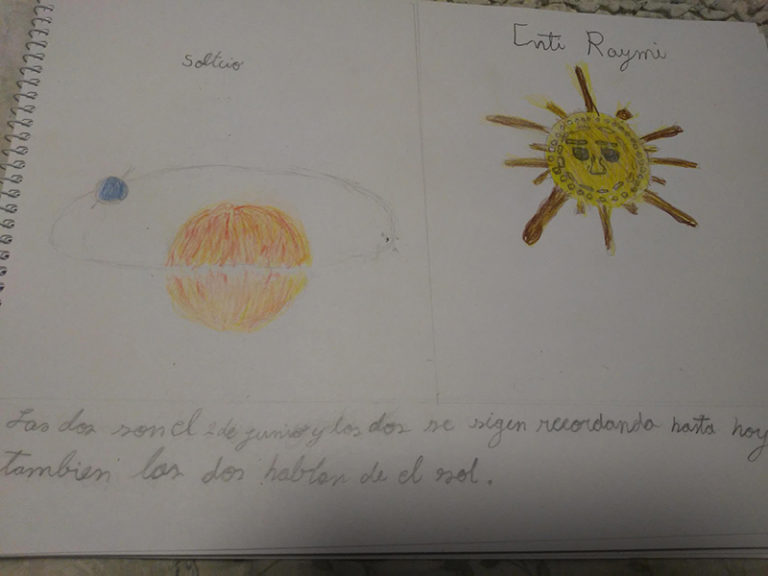 Soltcio
Inti Raymi
Las dos son el 2 de junio y los dos se sigen recordando hasta hoy
tambien las dos hablan de el sol.